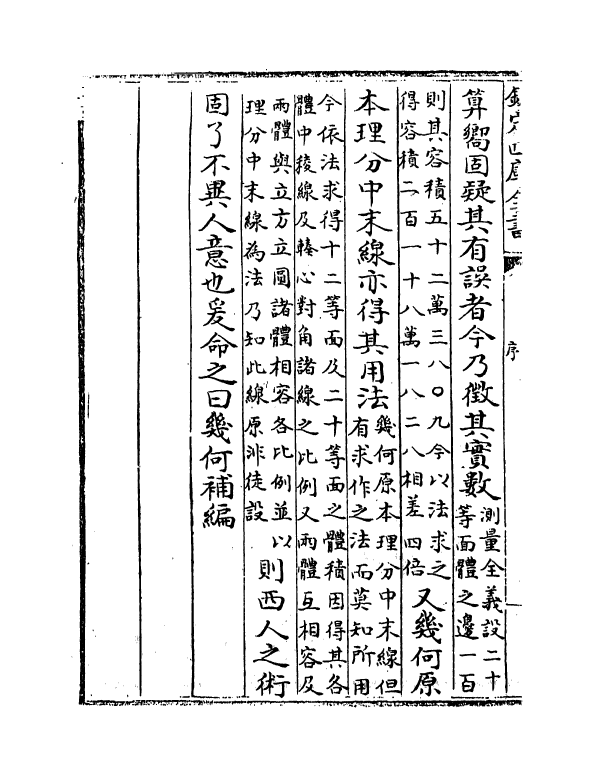 欽定四庫全書
序
算嚮固疑其有誤者今乃徵其實數測量全義設二十
等面體之邊一百
則其容積五十二萬三八〇九今以法求之
得容積二百一十八萬一八二八相差四倍又幾何原
本理分中末線亦得其用法幾何原本理分中末線但
有求作之法而莫知所用
今依法求得十二等面及二十等面之體積因得其各
體中稜線及輳心對角諸線之比例又兩體互相容及
兩體與立方立圓諸體相容各比例並以
理分中末線為法乃知此線原非徒設則西人之術
固了不異人意也爰命之曰幾何補編